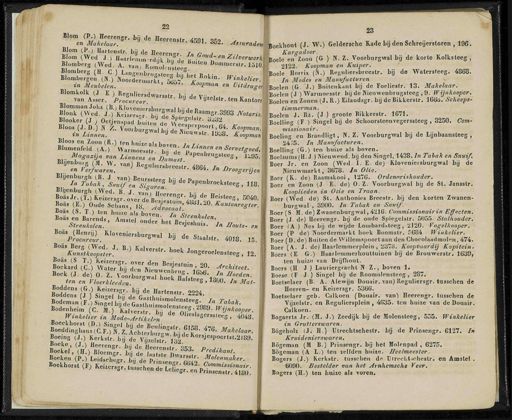 22
Blom (P.) Heerengr. bij de Heerenstr. 4591. 352.
en Makelaar.
Blom (P.) Hartenstr. bij de Heerengr. In Goud- en Zilverwerk
Blom (Wed. J.)
Blomberg (Wed. A. van) Romolensteeg.
Blomberg (H. C.) Langenbrugsteeg bij het Rokin. Winkelier.
Blombergen (N.) Noordermarkt, 5657. Koopman en Uitdrager
in Meubelen.
Blomkolk (J. E.) Reguliersdwarsstr. bij de Vijzelstr. ten Kantore
van Asser. Procureur.
Blomman Joha (B.) Kloveniersburgwal bij de Raamgr. 3993 Notaris.
Blonk (Wed. J.) Keizersgr. bij de Spiegelstr.
Blooker (J.) Ossjesmarkt buiten de Weesperpoort, 64. Koopman.
Bloos (J. D.) N. Z. Voorburgwal bij de Nieuwstr. 1058. Koopman
in Linnen.
Bloos en Zoon (R.) ten huize als boven. In Linnen en Servetgoed.
Blumenfeld (N.) Warmoesstr. bij de Papenbrugsteeg, 1295.
Magazijn van Linnens en Damast.
Blijenburg (N. W. van) Regulierenstr. 4864. In Droogerijen
en Verfwaren.
Blijenburgh (R. J. van) Beursstg bij de Papenbroeksteeg, 118.
In Tabak, Snuif en Sigaren.
Blijenburgh (Wed. R. J. van) Heerengr. bij de Heistreg, 5040.
Boas Jr. (I.) Keizersgr. over de Besjestuin, 4831. 20. Kantoorregter.
Boas (E.) Oude Schans, 18. Advocaat.
Boas (S. T.) ten huize als boven. In Steenkolen.
Boas en Barends, Amstel onder het Besjeshuis. In Houts- en
Steenkolen.
Boäs (Henri) Kloveniersburgwal bij de Staalstr. 4018. 15.
Procureur.
Boas Berg (Wed. J. M.) Kalverstr. hoek Jongeroelensteeg, 12.
Kunstkooper.
Boas (S. T.) Keizersgr. over den Besjestuin, 20. Architect.
Bockard (C.) Water bij den Nieuwenbrug. 1656. In Hoeden.
Bock (J. de) O. Z. Voorburgwal hoek Halsteeg, 1360. In Matten
en Vloerkleeden.
Boddens (G.) Keizersgr. bij de Hartenstr. 2224.
Boddens (J.) Singel bij de Gasthuismolensteeg. In Tabak.
Bodeman (F.) Singel bij de Gasthuismolensteeg 2989. Wijnkooper.
Bodenheim (C. M.) Kalverstr. bij de Olieslagerssteeg, 4043.
Winkelier in Mode-Artikelen.
Boeckhorst (D.) Singel bij de Beulingstr. 6158. 476. Makelaar.
Boeddinghaus (C F.) N. Z. Achterburgw. bij de Korsjespoortst. 2139.
Boeing (J.) Kerkstr. bij de Vijzelstr. 132.
Boeke, (J.) Heerengr. bij de Heerenstr. 353. Predikant.
Boekel, (H.) Bloemgr. bij de laatste Dwarsstr. Molenmaker.
Boeken (P.) Leidschegr. bij de Prinsengr. 6642. Commissionair.
Boekhorst (F.) Keizersgr. tusschen de Leliegr. en Prinsenstr. 4180.
23
Boekhout (J. W.) Geldersche Kade bij den Schreijerstoren, 196.
Kargadoor.
Boele en Zoon (G) N. Z. Voorburgwal bij de korte Kolksteeg,
2122. Koopman en Kuiper.
Boele Heuris (N.) Reguliersbreestr. bij de Watersteeg. 4868.
In Modes en Manufacturen
Boelen (G. J.) Buitenkant bij de Foelistr. 13. Makelaar.
Boelen (J.) Warmoesstr. bij de Nieuwebrugsteeg, 9. Wijnkooper.
Boelen en Zoonen (J. R.) Eilandsgr. bij de Bikkerstr. 166. Scheepstimmerman.
Boelen J. Rz. (J.) groote Bikkerstr. 1671.
Boelling (F.) Singel bij de Schoorsteenvegerssteeg, 3250. Commissionair.
Boeling en Brundligt, N. Z. Voorburgwal bij de Lijnbaansteeg,
2415. In Manufacturen.
Boelling (G.) ten huize als boven.
Boelaums (H.J.) Nieuwend. bij den Singel, 1438. In Tabak en Snuif.
Boer Jr. en Zoon (Wed. J. E. de) Kloveniersburgwal bij de
Nieuwmarkt, 3678. In Olie.
Boer (K. de) Raamskooi, 1276. Ordonriskouder.
Boer en Zoon (J. E. de) O. Z. Voorburgwal bij de St. Jansstr.
Kopijladen in Olie en Traan.
Boer (Wed. de) St. Anthonies Breestr. bij den korten Zwanenburgwal,
3900. In Tabak en Snuif.
Boer (S. M. de) Zwanenburgwal, 4216. Commissionair in Effecten.
Boer (J. de) Heerengr. bij de oude Spiegelstr. 5065. Stalhouder.
Boer (A.) Nes bij de wijde Lombardsteeg, 2120. Vogelkooper.
Boer (P de) Noordermarkt hoek Boomstr. 1684. Winkelier.
Boer (D. de) Buiten de Willemspoort aan den Chocolaadmolen, 474.
Boer (A. J. de) Haarlemmerplein, 2278. Koopvaardij Kapitein.
Boers (E. G.) Haarlemmerhouttuinen bij de Brouwerstr. 1639,
ten huize van Drijfhout.
Boers (H J) Lauriergracht N Z., boven 1.
Boese (F J.) Singel bij de Roomolensteeg, 287.
Boetselaer (B. A. Alewijn Douair. van) Reguliersgr. tusschen de
Heeren- en Keizersgr. 5366.
Boetselaer geb. Calkoen (Douair. van) Heerengr. tusschen de
Vijzelstr. en Reguliersplein, 4635. ten huize van de Douair.
Calkoen.
Bogaerts Jr. (M. J.) Zeedijk bij de Molensteeg, 555. Winkelier
in Grutterswaren.
Bögeholt (J. H.) Utrechtschestr. bij de Prinsengr. 6127. In
Kruidenierswaren.
Bögeman (M. B.) Prinsengr. bij het Molenpad, 6275.
Bögeman (A L.) ten zelfden huize. Heelmeester.
Bogers (J.) Kerkstr. tusschen de Utrechtschestr. en Amstel.
6000. Besteller van het Arnhemsche Veer.
Bogers (H.) ten huize als voren.